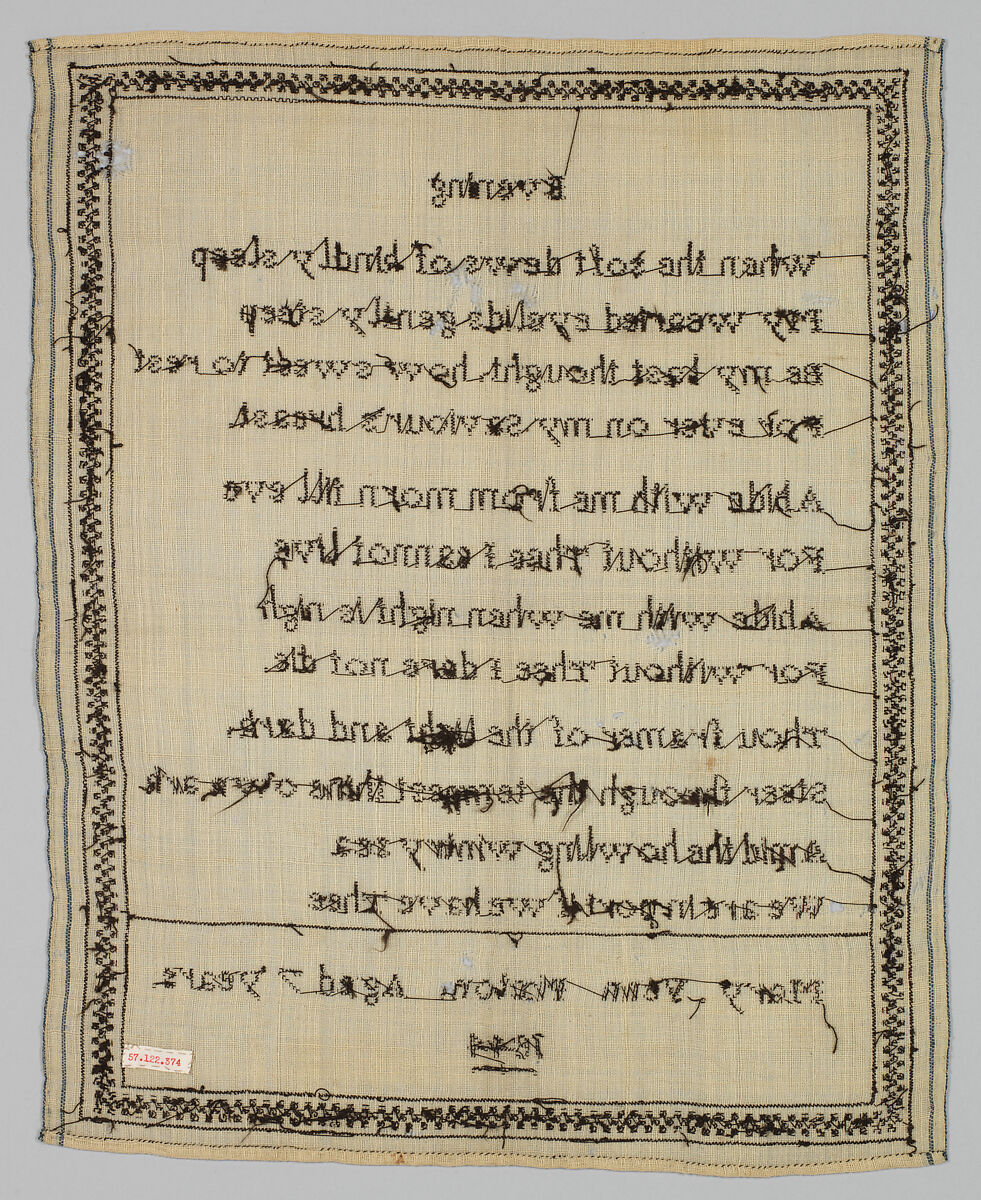 Evening
when the soft dews of kindly sleep
My wearied eyelids gently steep
Be my last thought how sweet to rest
For ever on my saviours breast
Abide with me from morn till eve
For without Thee I cannot live
Abide with me when night is nigh
For without Thee I dare not die
Thou framer of the light and dark
steer through the tempest thine own ark
Amid the howling wintry sea
We are in port if we have Thee
Mary Aged 7 years
57.122.574